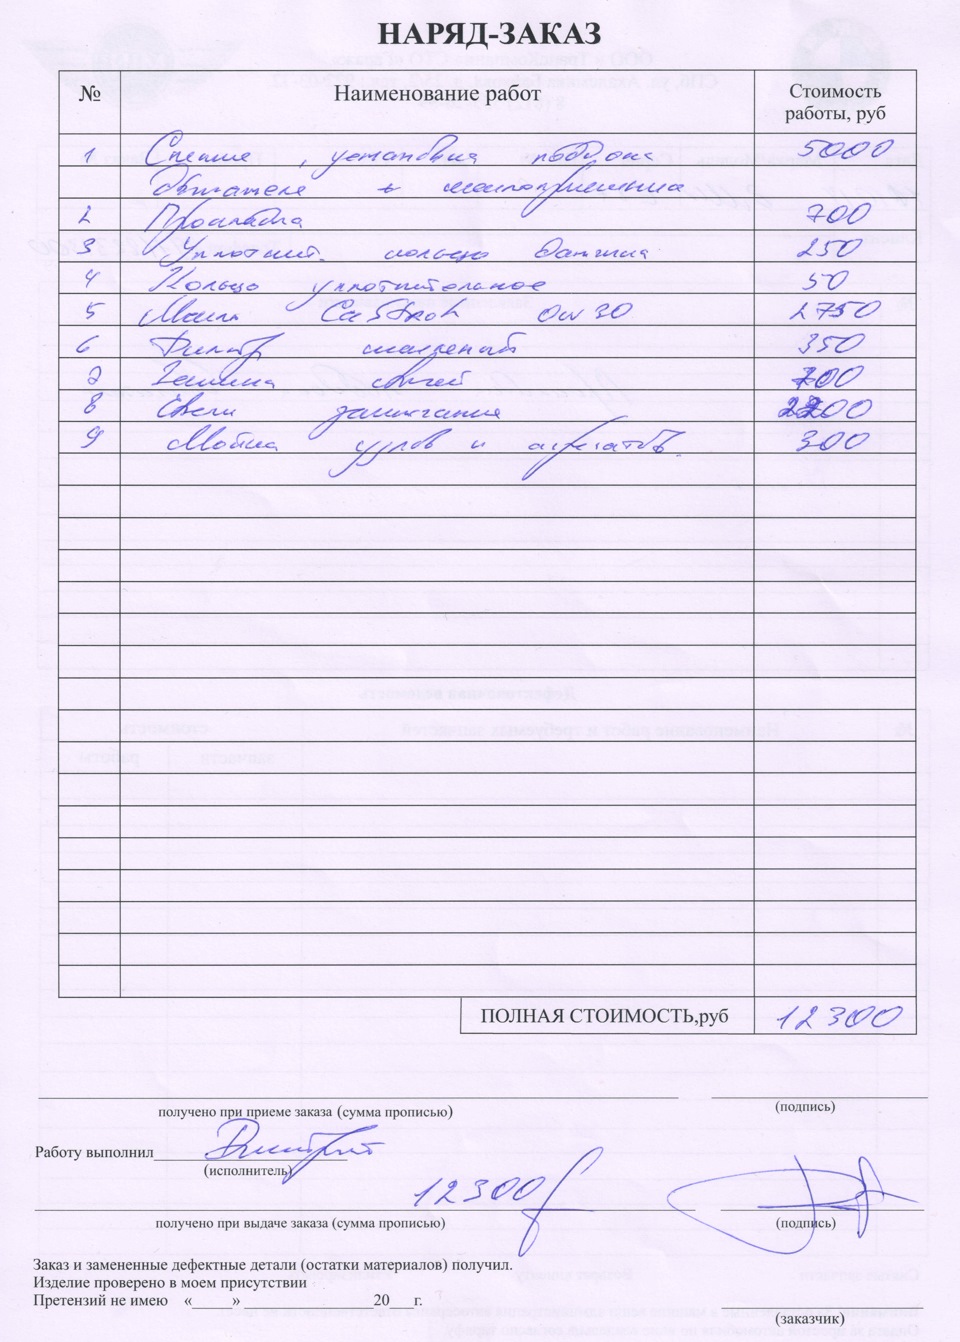 НАРЯД-ЗАКАЗ
№ Наименование работ Стоимость работы, руб
1 Снятие, установка поддона 5000
двигателя + маслоприемника
2 Прокладка 700
3 Уплотнит. кольцо датчика 250
4 Кольцо уплотнительное 50
5 Масло Castrol 0w30 2750
6 Фильтр масляный 350
7 Замена свечей 700
8 Свечи зажигания 2200
9 Мойка узлов и агрегатов. 300
ПОЛНАЯ СТОИМОСТЬ,руб 12300
получено при приеме заказа (сумма прописью) (подпись)
Работу выполнил Дмитрий
(исполнитель)
12300
получено при выдаче заказа (сумма прописью) (подпись)
Заказ и замененные дефектные детали (остатки материалов) получил.
Изделие проверено в моем присутствии .
Претензий не имею «_____» 20__ г.
(заказчик)